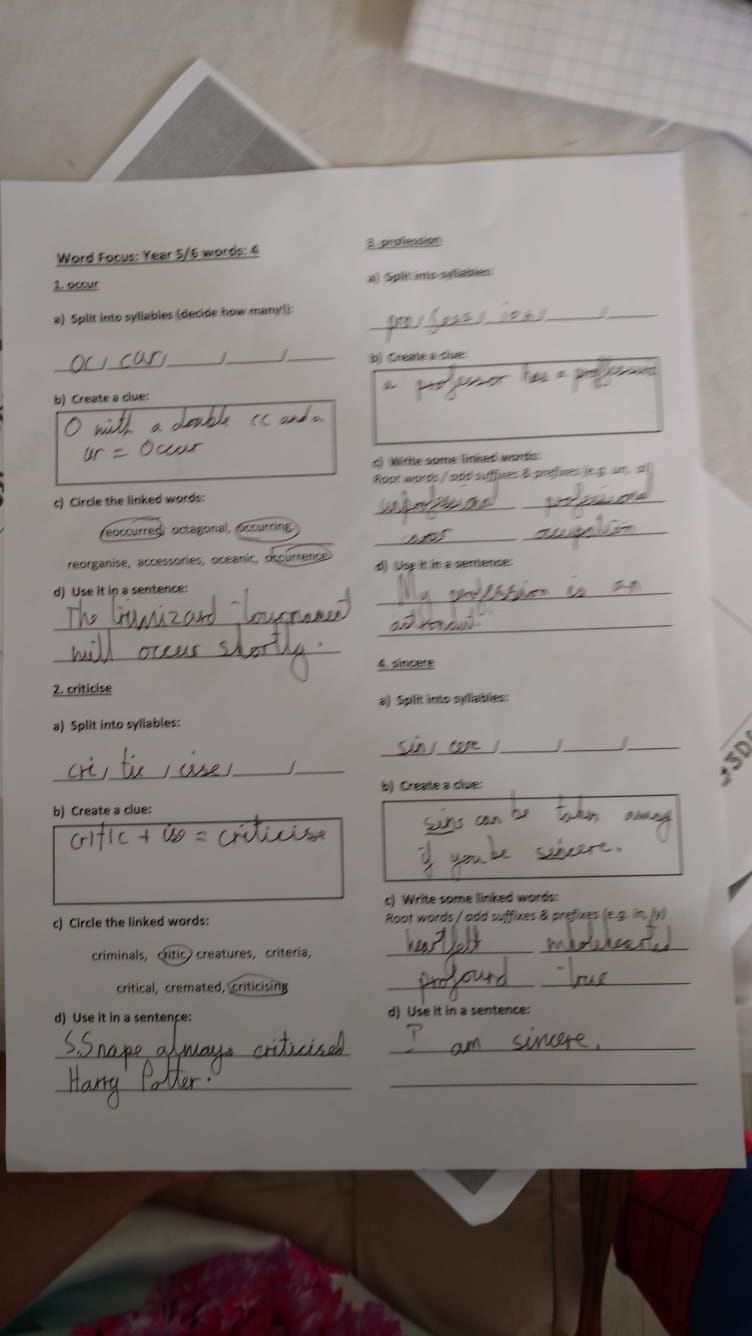 Word Focus: Year 5/6 words: 4
1. occur
a) Split into syllables (decide how many!):
oc/ cur/ / /
b) Create a clue:
O with a double cc and a
ur = Occur
c) Circle the linked words:
reoccurred, octagonal, occurring,
reorganise, accessories, oceanic, occurrence
d) Use it in a sentence:
The Triwizard Tournament
will occur shortly.
2. criticise
a) Split into syllables:
cri/ tic / ise/ /
b) Create a clue:
critic + ise = criticise
c) Circle the linked words:
criminals, critic, creatures, criteria,
critical, cremated, criticising
d) Use it in a sentence:
S.Snape always criticised
Harry Potter.
3. profession
a) Split into syllables:
pro/ fess/ ion/ /
b) Create a clue:
a professor has a profession
c) Write some linked words:
Root words / add suffixes & prefixes (e.g. un, al)
d) Use it in a sentence:
My profession is an
astronaut.
4. sincere
a) Split into syllables:
sin/ cere / / /
b) Create a clue:
sins can be taken away
if you be sincere.
c) Write some linked words:
Root words / add suffixes & prefixes (e.g. in, ly)
heartfelt wholehearted
profound true
d) Use it in a sentence:
I am sincere.
3D